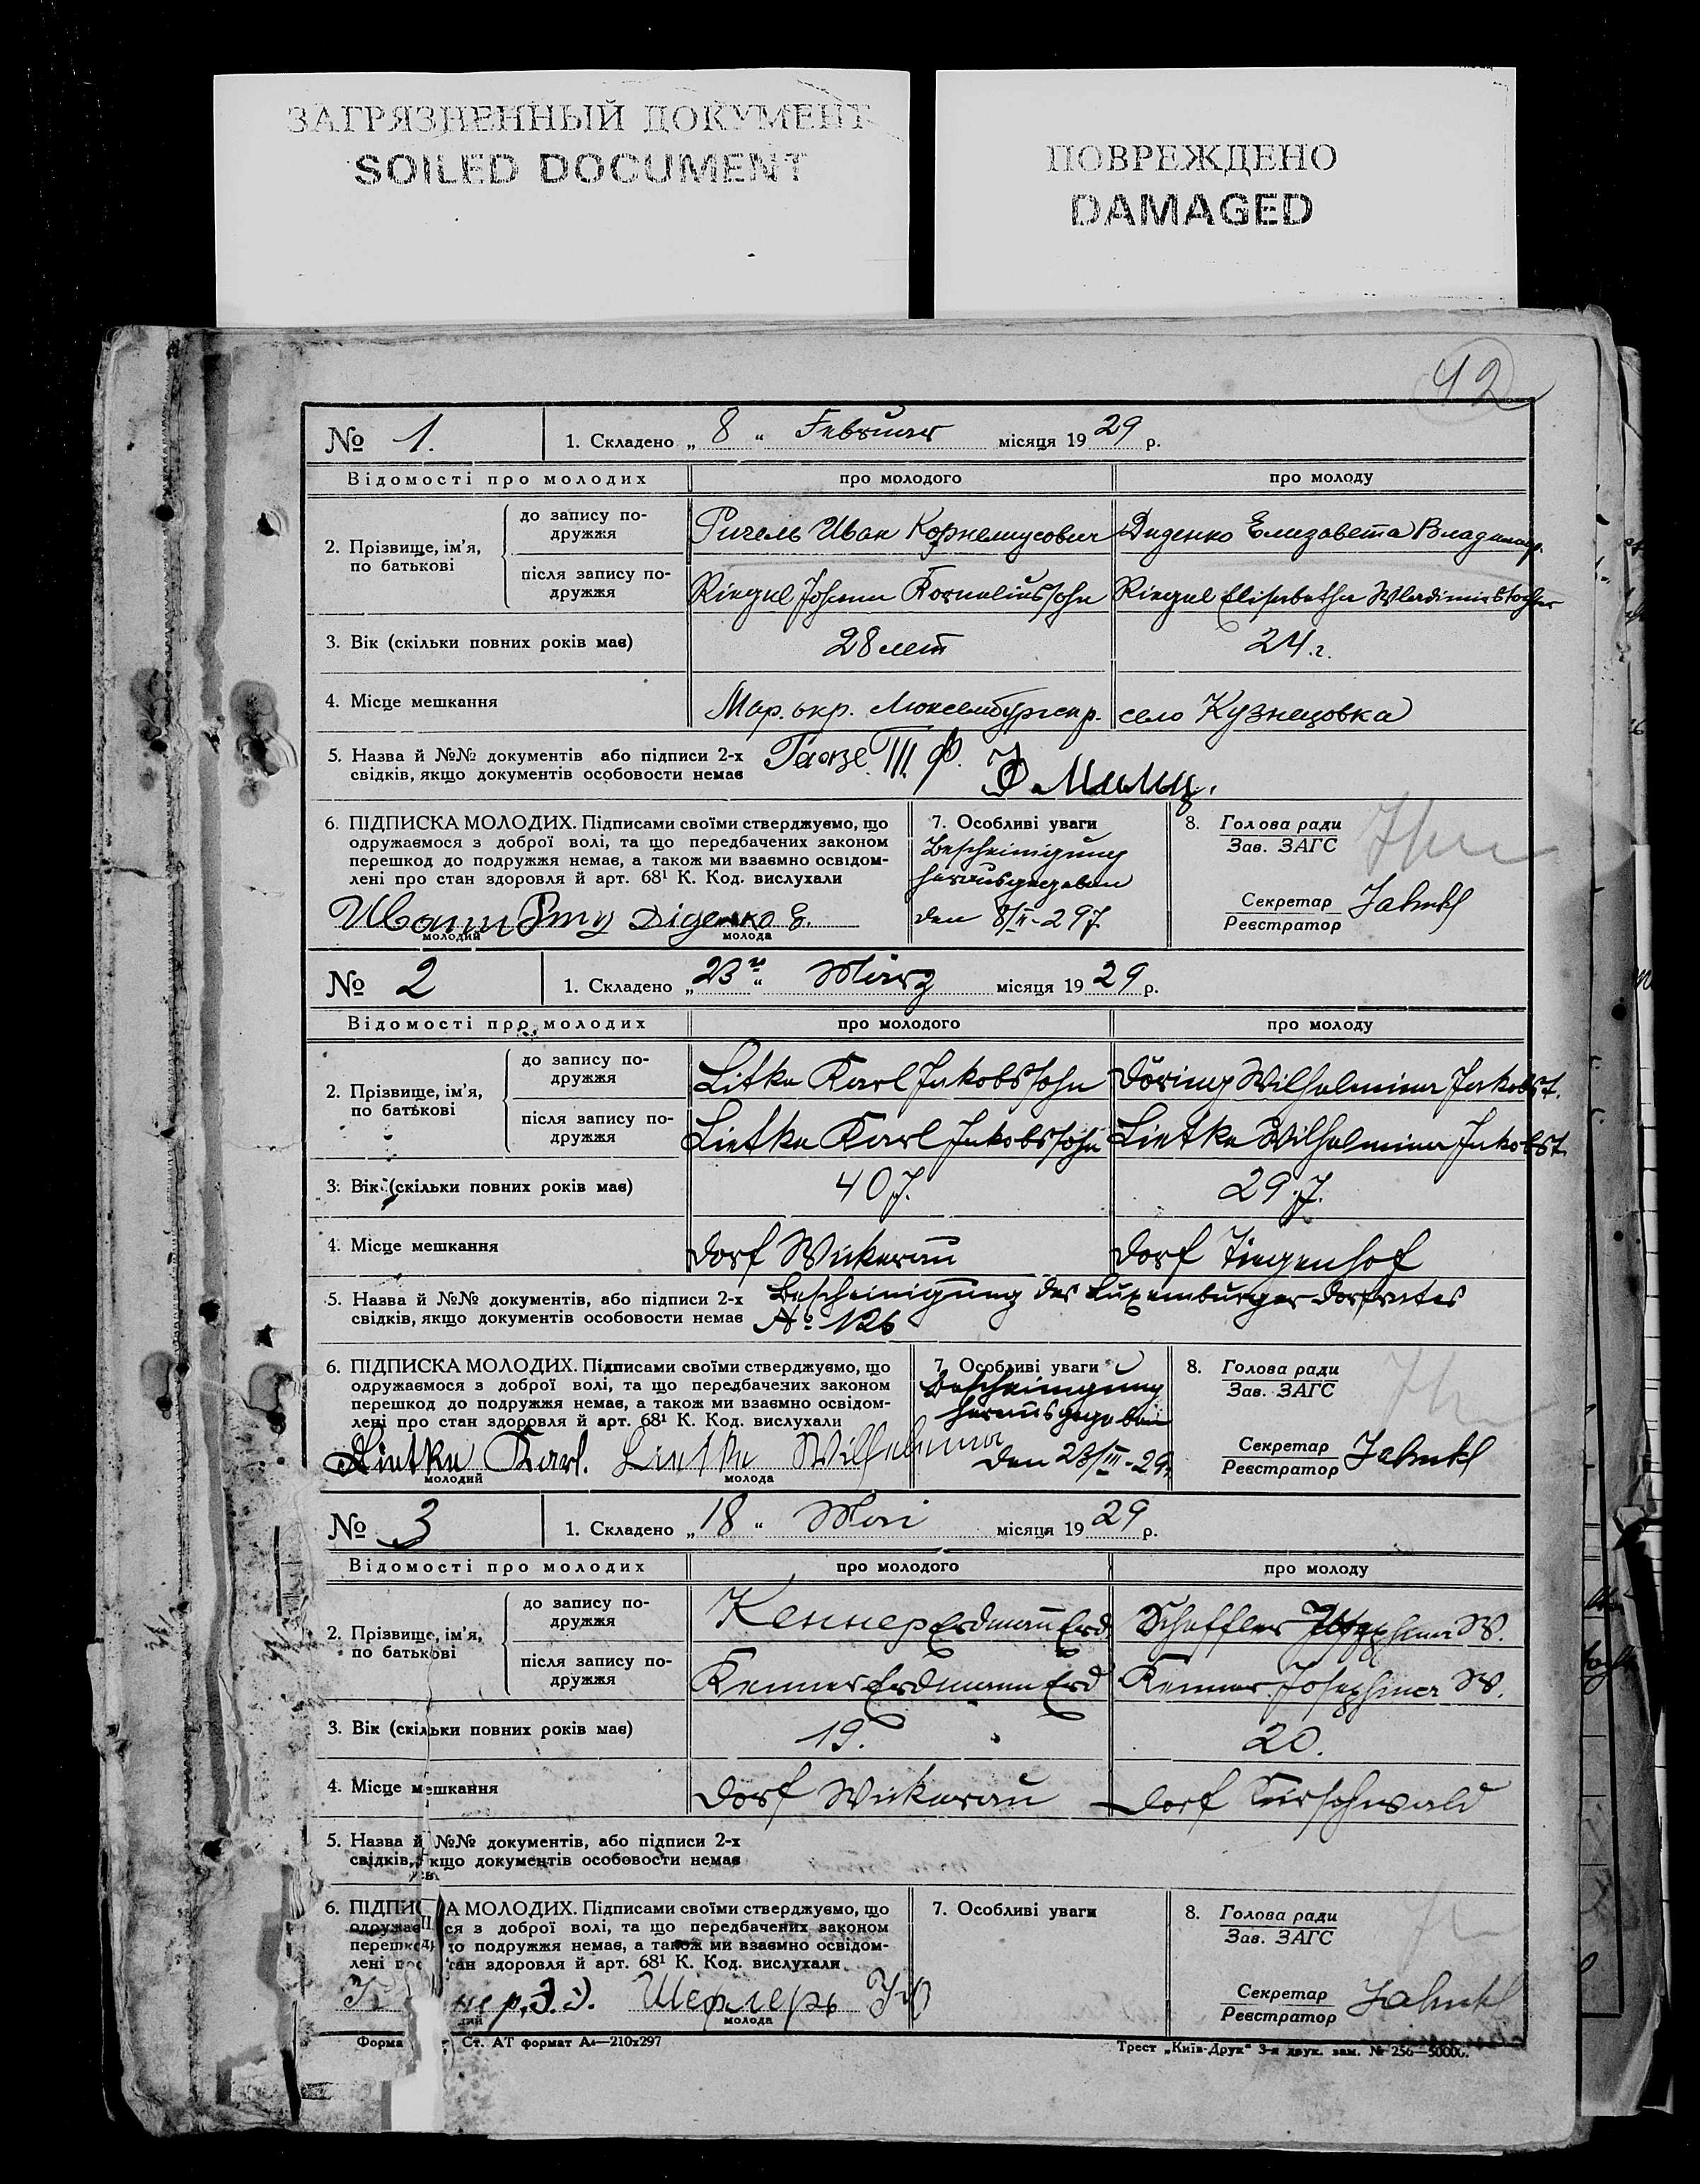 ЗАГРЯЗНЕННЫЙ ДОКУМЕНТ
SOILED DOCUMENT
ПОВРЕЖДЕНО
DAMAGED
42
№ 1. 1. Складено „ 8 “ Februar місяця 19 29 р.
Відомості про молодих про молодого про молоду
2. Прізвище, ім'я, по батькові
до запису по-
дружжя
Ригель Иван Корнелиусович Диденко Елизавета Владимир.
після запису по-
дружжя
Riegel Johann Korneliussohn Riegel Elisabetha Wladimirstochter
3. Вік (скільки повних років має) 28 лет 24 г.
4. Місце мешкання Мар. окр. Люксембургск р. село Кузнецовка
5. Назва й №№ документів або підписи 2-х
свідків, якщо документів особовости немає
6. ПІДПИСКА МОЛОДИХ. Підписами своїми стверджуємо, що
одружаємося з доброї волі, та що передбачених законом
перешкод до подружжя немає, а також ми взаємно освідом-
лені про стан здоровля й арт. 68¹ К. Код. вислухали
Діденко Е.
молодий молода
7. Особливі уваги
Bescheinigung
herausgegeben
den 8/II-29 J.
8. Голова ради
Зав. ЗАГС
Секретар
Реєстратор
№ 2 1. Складено „ 23 “ März місяця 19 29 р.
Відомості про молодих про молодого про молоду
2. Прізвище, ім'я, по батькові
до запису по-
дружжя
Litke Karl Jakobssohn Döring Wilhelmina Jakobst.
після запису по-
дружжя
Lietke Karl Jakobssohn Lietke Wilhelmina Jakobst
3. Вік (скільки повних років має) 40 J. 29 J.
4. Місце мешкання Dorf Wickerau Dorf Tiegenhof
5. Назва й №№ документів, або підписи 2-х
свідків, якщо документів особовости немає
Bescheinigung des Luxemburger Dorfrates
№ 126
6. ПІДПИСКА МОЛОДИХ. Підписами своїми стверджуємо, що
одружаємося з доброї волі, та що передбачених законом
перешкод до подружжя немає, а також ми взаємно освідом-
лені про стан здоровля й арт. 68¹ К. Код. вислухали
Lietke Karl. Lietke Wilhelmina
молодий молода
7. Особливі уваги
Bescheinigung
herausgegeben
den 23/III-29
8. Голова ради
Зав. ЗАГС
Секретар
Реєстратор
№ 3 1. Складено „ 18 “ Mai місяця 19 29 р.
Відомості про молодих про молодого про молоду
2. Прізвище, ім'я, по батькові
до запису по-
дружжя
Кеннер Erdmann Erd. Scheffler Josephina W.
після запису по-
дружжя
Kenner Erdmann Erd Kenner Josephina W.
3. Вік (скільки повних років має) 19. 20.
4. Місце мешкання Dorf Wickerau Dorf Kirschwald
5. Назва й №№ документів, або підписи 2-х
свідків, якщо документів особовости немає
6. ПІДПИСКА МОЛОДИХ. Підписами своїми стверджуємо, що
одружаємося з доброї волі, та що передбачених законом
перешкод до подружжя немає, а також ми взаємно освідом-
лені про стан здоровля й арт. 68¹ К. Код. вислухали
Шефлеръ
молода
7. Особливі уваги
8. Голова ради
Зав. ЗАГС
Секретар
Реєстратор
Форма Ст. АТ формат А4—210х297
Трест „Київ-Друк“ 3-я друк. зам. № 256—5000.